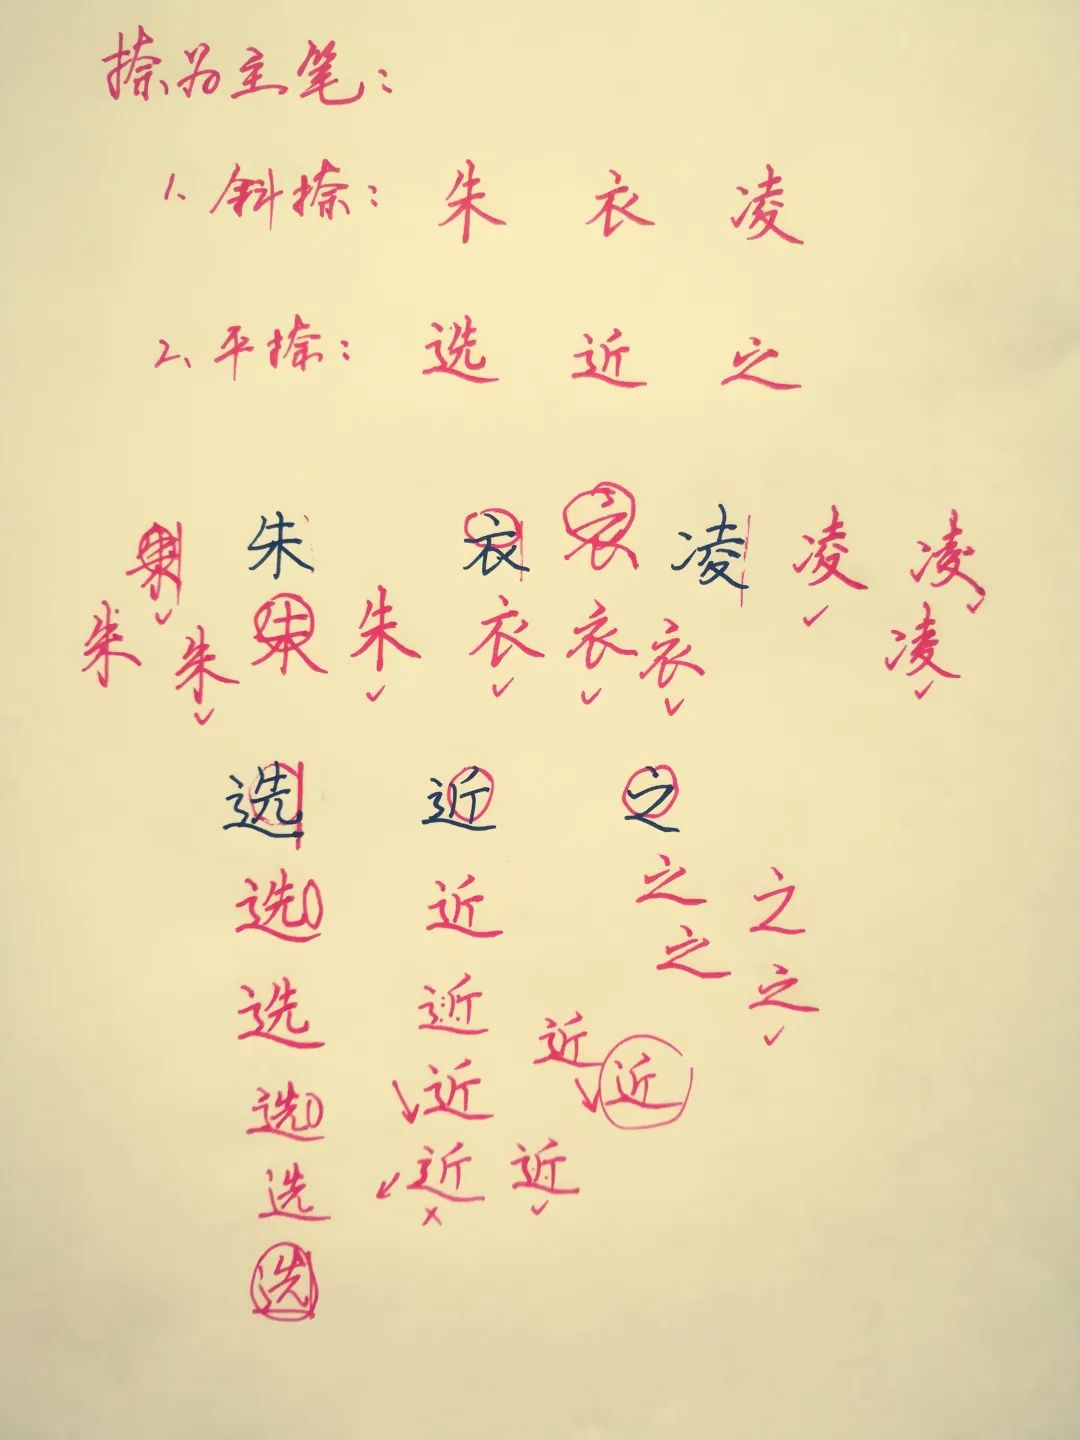 捺为主笔：
1、斜捺：朱 衣 凌
2、平捺：选 近 之
朱 朱 衣 衣 凌 凌 凌
朱 朱 朱 朱 衣 衣 衣 凌
选 近 之
选 近 之 之
之
选 近 之
近
选 近 近
选 近 近
选